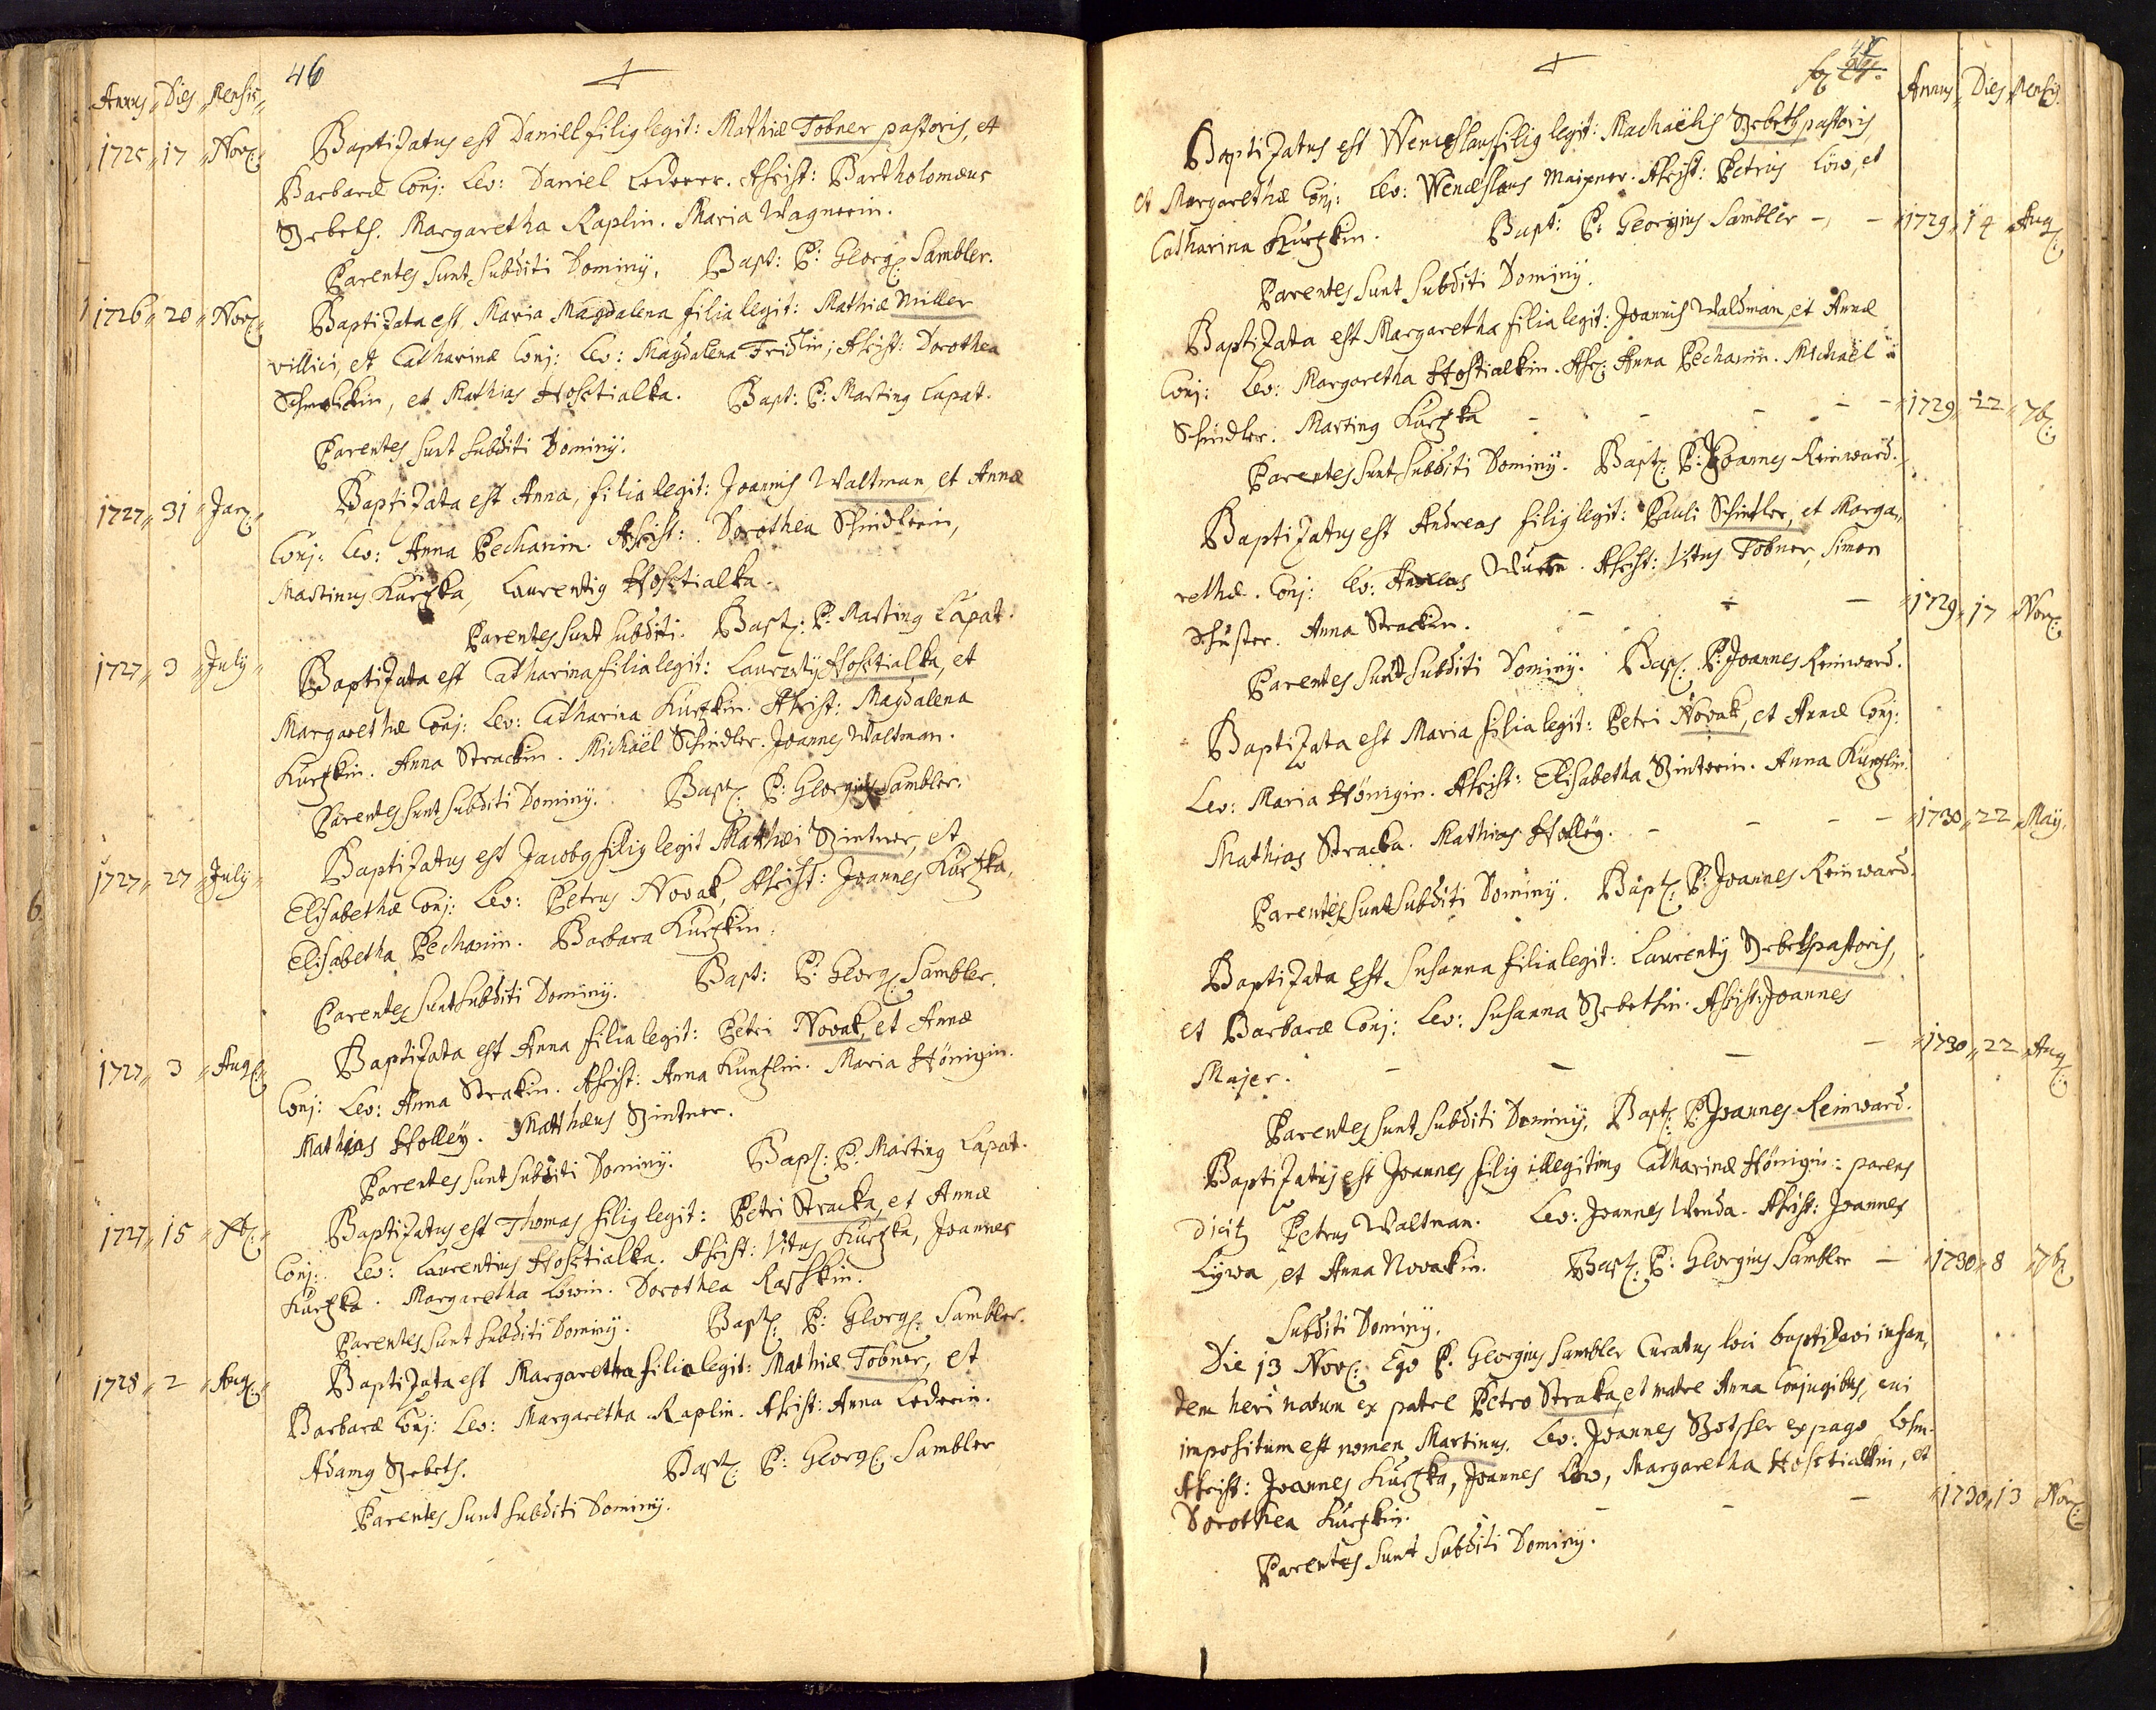 46
Annus Dies Mensis
1725 17 Nov: Baptizatus est Daniel filius legit: Mathiæ Tobner pastoris, et
Barbaræ Conj: Lev: Daniel Lederer. Assist: Bartholomæus
Szebets. Margaretha Raplin. Maria Wagnerin.
Parentes sunt subditi Dominÿ. Bapt: P: Georg: Sambler.
1726 20 Nov: Baptizata est Maria Magdalena filia legit: Mathiæ Miller
villici, et Catharinæ Conj: Lev: Magdalena Fridlin; Assist: Dorothea
et Mathias Hosstialka. Bapt: P: Martinus Lapat.
Parentes sunt subditi Dominÿ.
1727 31 Jan: Baptizata est Anna, filia legit: Joannis Waltman, et Annæ
Conj: Lev: Anna Pechanin. Assist: Dorothea Schindlerin,
Martinus Kurzka, Laurentius Hosstialka.
Parentes sunt subditi. Bapt: P: Martinus Lapat.
1727 3 Julÿ Baptizata est Catharina filia legit: Laurentÿ Hosstialka, et
Margarethæ Conj: Lev: Catharina Kurzkin. Assist: Magdalena
Kurzkin. Anna Strackin. Michaël Schindler. Joannes Waltman.
Parentes sunt subditi Dominÿ. Bapt: P: Georgius Sambler.
1727 27 Julÿ Baptizatus est Jacobus filius legit Matthæi Szintner, et
Elisabethæ Conj: Lev: Petrus Novak, Assist: Joannes Kurzka,
Elisabetha Pechanin. Barbara Kurzkin.
Parentes sunt subditi Dominÿ. Bapt: P: Georg: Sambler.
1727 3 Aug: Baptizata est Anna filia legit: Petri Novak, et Annæ
Conj: Lev: Anna Strakin. Assist: Anna Kunzlin. Maria Hönigin.
Mathias Holleÿ. Matthæus Szintner.
Parentes sunt subditi Dominÿ. Bapt: P: Martinus Lapat.
1727 15 Xb: Baptizatus est Thomas filius legit: Petri Stracka, et Annæ
Conj: Lev: Laurentius Hosstialka. Assist: Vitus Kurzka, Joannes
Kurzka. Margaretha Löwin. Dorothea Raschkin.
Parentes sunt subditi Dominÿ. Bapt: P: Georg: Sambler.
1728 2 Aug: Baptizata est Margaretha filia legit: Mathiæ Tobner, et
Barbaræ Conj: Lev: Margaretha Raplin. Assist: Anna Lederin.
Adamus Szebets. Bapt: P: Georg: Sambler
Parentes sunt subditi Dominÿ.
47
Annus Dies Mensis
Baptizatus est Wenceslaus filius legit: Machaëlis Szebets pastoris
et Margarethæ Conj: Lev: Wenceslaus Maixner. Assist: Petrus Löw, et
Catharina Kurzkin. Bapt: P: Georgius Sambler - - 1729 14 Aug:
Parentes sunt subditi Dominÿ.
Baptizata est Margaretha filia legit: Joannis Waldman, et Annæ
Conj: Lev: Margaretha Hostialkin. Ass: Anna Pechanin. Michaël
Schindler. Martinus Kurzka - - - - 1729 22 7b:
Parentes sunt subditi Dominÿ. Bapt: P: Joannes Reinward.
Baptizatus est Andreas filius legit: Pauli Schindler, et Marga,,
rethæ. Conj: Lev: Andreas. Assist: Vitus Tobner, Simon
Schuster. Anna Strackin. - - - 1729 17 Nov:
Parentes sunt subditi Dominÿ. Bap: P: Joannes Reinward.
Baptizata est Maria filia legit: Petri Novak, et Annæ Conj:
Lev: Maria Hönigin. Assist: Elisabetha Szinterin. Anna Kunzlin.
Mathias Stracka. Mathias Holleÿ. - - - - 1730 22 Maÿ.
Parentes sunt subditi Dominÿ. Bapt: P: Joannes Reinward.
Baptizata est Susanna filia legit: Laurentÿ Szebets pastoris,
et Barbaræ Conj: Lev: Susanna Szebetsin. Assist: Joannes
Majer. - - - - 1730 22 Aug:
Parentes sunt subditi Dominÿ. Bapt: P: Joannes Reinward.
Baptizatus est Joannes filius illegitimus Catharinæ Hönigin: parens
dicit Petrus Waltman. Lev: Joannes Wonda. Assist: Joannes
Lÿwa, et Anna Novakin. Bapt: P: Georgius Sambler - 1730 8 7b:
Subditi Dominÿ.
Die 13 Nov: Ego P. Georgius Sambler Curatus loci baptizavi infan,
tem heri natum ex patre Petro Straka, et matre Anna Conjugibus, cui
impositum est nomen Martinus. Lev: Joannes ex pago Losin.
Assist: Joannes Kurzka, Joannes Löw, Margaretha Hosstialkin, et
Dorothea Kurzkin. - - - 1730 13 Nov:
Parentes sunt subditi Dominÿ.